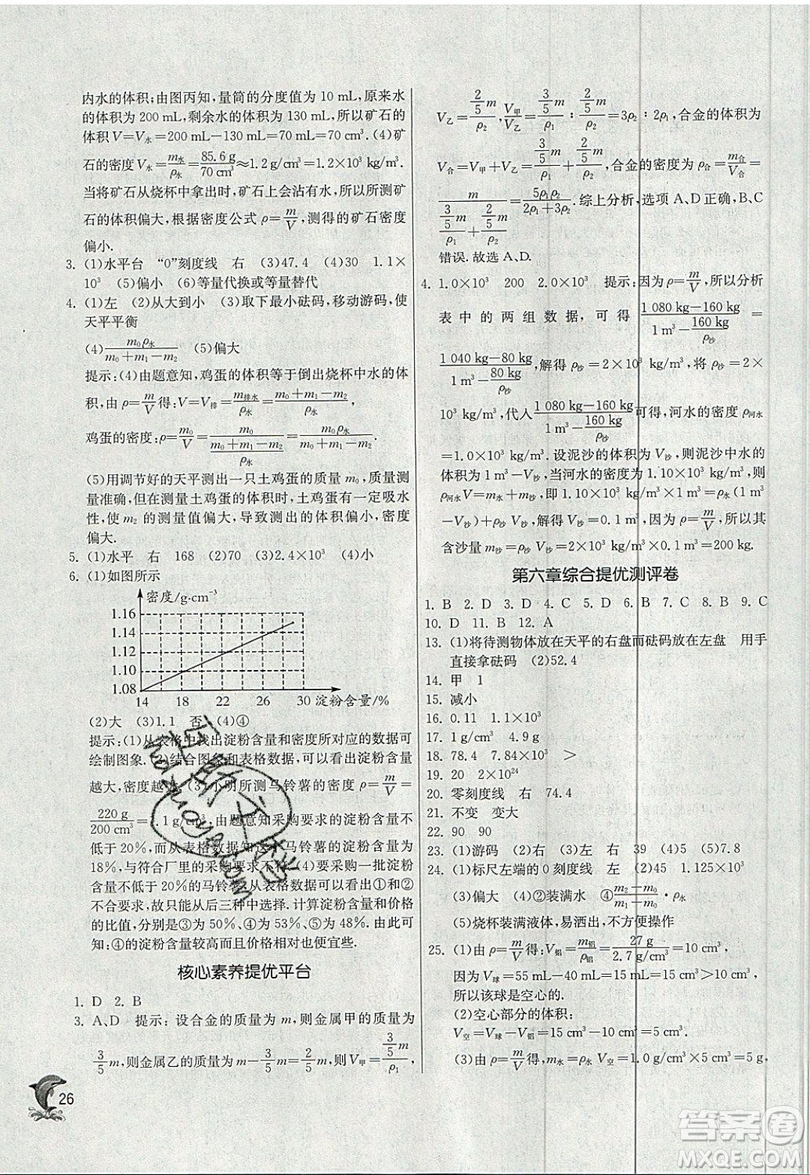 内水的体积;由图丙知,量筒的分度值为 10 mL,原来水
的体积为 200 mL,剩余水的体积为 130 mL,所以矿石的
体积 V=V水=200 mL-130 mL=70 mL=70 cm³.(4)矿
石的密度 V水=m水/ρ水=85.6 g/70 cm³≈1.2 g/cm³=1.2×10³ kg/m³.
当将矿石从烧杯中拿出时,矿石上会沾有水,所以所测矿
石的体积偏大,根据密度公式 ρ=m/V,测得的矿石密度
偏小.
3. (1)水平台 “0”刻度线 右 (3)47.4 (4)30 1.1×
10³ (5)偏小 (6)等量代换或等量替代
4. (1)左 (2)从大到小 (3)取下最小砝码,移动游码,使
天平平衡
(4)m₀ρ水/(m₀+m₁-m₂) (5)偏大
提示:(4)由题意知,鸡蛋的体积等于倒出烧杯中水的体
积,由 ρ=m/V得:V=V排=m排水/ρ水=(m₀+m₁-m₂)/ρ水,
鸡蛋的密度:ρ=m/V=m₀/((m₀+m₁-m₂)/ρ水)=m₀ρ水/(m₀+m₁-m₂).
(5)用调节好的天平测出一只土鸡蛋的质量 m₀,数据准
确,但在测量土鸡蛋的体积时,土鸡蛋打湿了有一定吸水
性,使 m₂ 的测量值偏大,导致测出的体积偏小,密度
偏大.
5. (1)水平 右 168 (2)70 (3)2.4×10³ (4)偏小
6. (1)如图所示
密度/g·cm⁻³
1.16
1.14
1.12
1.10
1.08
14 18 22 26 30 淀粉含量/%
(2)大 (3)1.1 否 (4)④
提示:(1)从表格中找出淀粉含量和密度所对应的数据可
绘制图象.(2)结合图象和表格数据,可以看出淀粉含量
越大,密度越大.(3)小明所测马铃薯的密度 ρ=m/V=
220 g/200 cm³=1.1 g/cm³.由题意知采购要求的淀粉含量不
低于 20%,而从表格数据知该马铃薯的淀粉含量为
18%,与符合厂里的采购要求不符.(4)要采购一批淀粉
含量不低于 20%的马铃薯,结合表格数据可以看出,只
能从后三种中选择.计算淀粉含量和价格
的比值,分别是③为 50%、④为 53%、⑤为 48%.由此可
知:④的淀粉含量较高而且价格相对也较便宜.
核心素养提优平台
1. D 2. B
3. A、D 提示:设合金的质量为 m,则金属甲的质量为
3/5m,则金属乙的质量为 m-3/5m=2/5m,则 V甲=(3/5m)/ρ₁,
V乙=(2/5m)/ρ₂,V甲/V乙=((3/5m)/ρ₁)/((2/5m)/ρ₂)=3ρ₂∶2ρ₁,合金的体积为
V合=V甲+V乙=(3/5m)/ρ₁+(2/5m)/ρ₂,所以合金的密度为 ρ合=m合/V合=
m/((3/5m)/ρ₁+(2/5m)/ρ₂)=5ρ₁ρ₂/(2ρ₁+3ρ₂).综上分析,选项 A、D 正确,B、C
错误.故选 A、D.
4. 1.0×10³ 200 2.0×10³ 提示:因为 ρ=m/V,所以分析
表中的两组数据,可得(1 080 kg-160 kg)/(1 m³-160 kg/ρ沙)=
(1 040 kg-80 kg)/(1 m³-80 kg/ρ沙),解得 ρ沙=2×10³ kg/m³,将 ρ沙=2×
10³ kg/m³,代入(1 080 kg-160 kg)/(1 m³-160 kg/ρ沙)可得,河水的密度 ρ河水
=1.0×10³ kg/m³.设泥沙的体积为 V沙,则泥沙中水的
体积=1-V沙,当河水的密度为 1.10×10³ kg/m³,则
ρ河水V=m水+m沙,即 1.10×10³ kg/m³×1 m³=ρ水(1-
V沙)+ρ沙V沙,解得 V沙=0.1 m³,由 ρ=m/V可得,m=ρV,则
其含沙量为 m沙=ρ沙V沙=2×10³ kg/m³×0.1 m³=200 kg.
第六章综合提优测评卷
1. B 2. D 3. D 4. B 5. B 6. D 7. B 8. B 9. C
10. D 11. B 12. A
13. (1)将待测物体放在天平的右盘而砝码放在左盘 用手
直接拿砝码 (2)52.4
14. 甲 1
15. 减小
16. 0.11 1.1×10³
17. 1 g/cm³ 9 g
18. 78.4 7.84×10³ >
19. 20 2×10²⁴
20. 零刻度线 右 74.4
21. 不变 变大
22. 90 90
23. (1)游码 (2)右 (3)左 (4)39 (5)5 (6)7.8
24. (1)标尺左端的 0 刻度线 右 (2)45 1.125×10³
(3)偏大 (4)②装满水 (m₂-m₀)/(m₁-m₀)·ρ水
(5)烧杯装满液体,易洒出,不方便操作
25. (1)由 ρ=m/V得:V铝=m铝/ρ铝=27 g/2.7 g/cm³=10 cm³,
因为 V球=V2-V1=65 cm³-50 cm³=15 cm³>10 cm³,
所以该球是空心的.
(2)空心部分的体积:
V空=V球-V铝=15 cm³-10 cm³=5 cm³.
(3)由 ρ=m/V得,m水=ρ水 V空=1.0 g/cm³×5 cm³=5 g.
26
答案圈
MXQE.COM